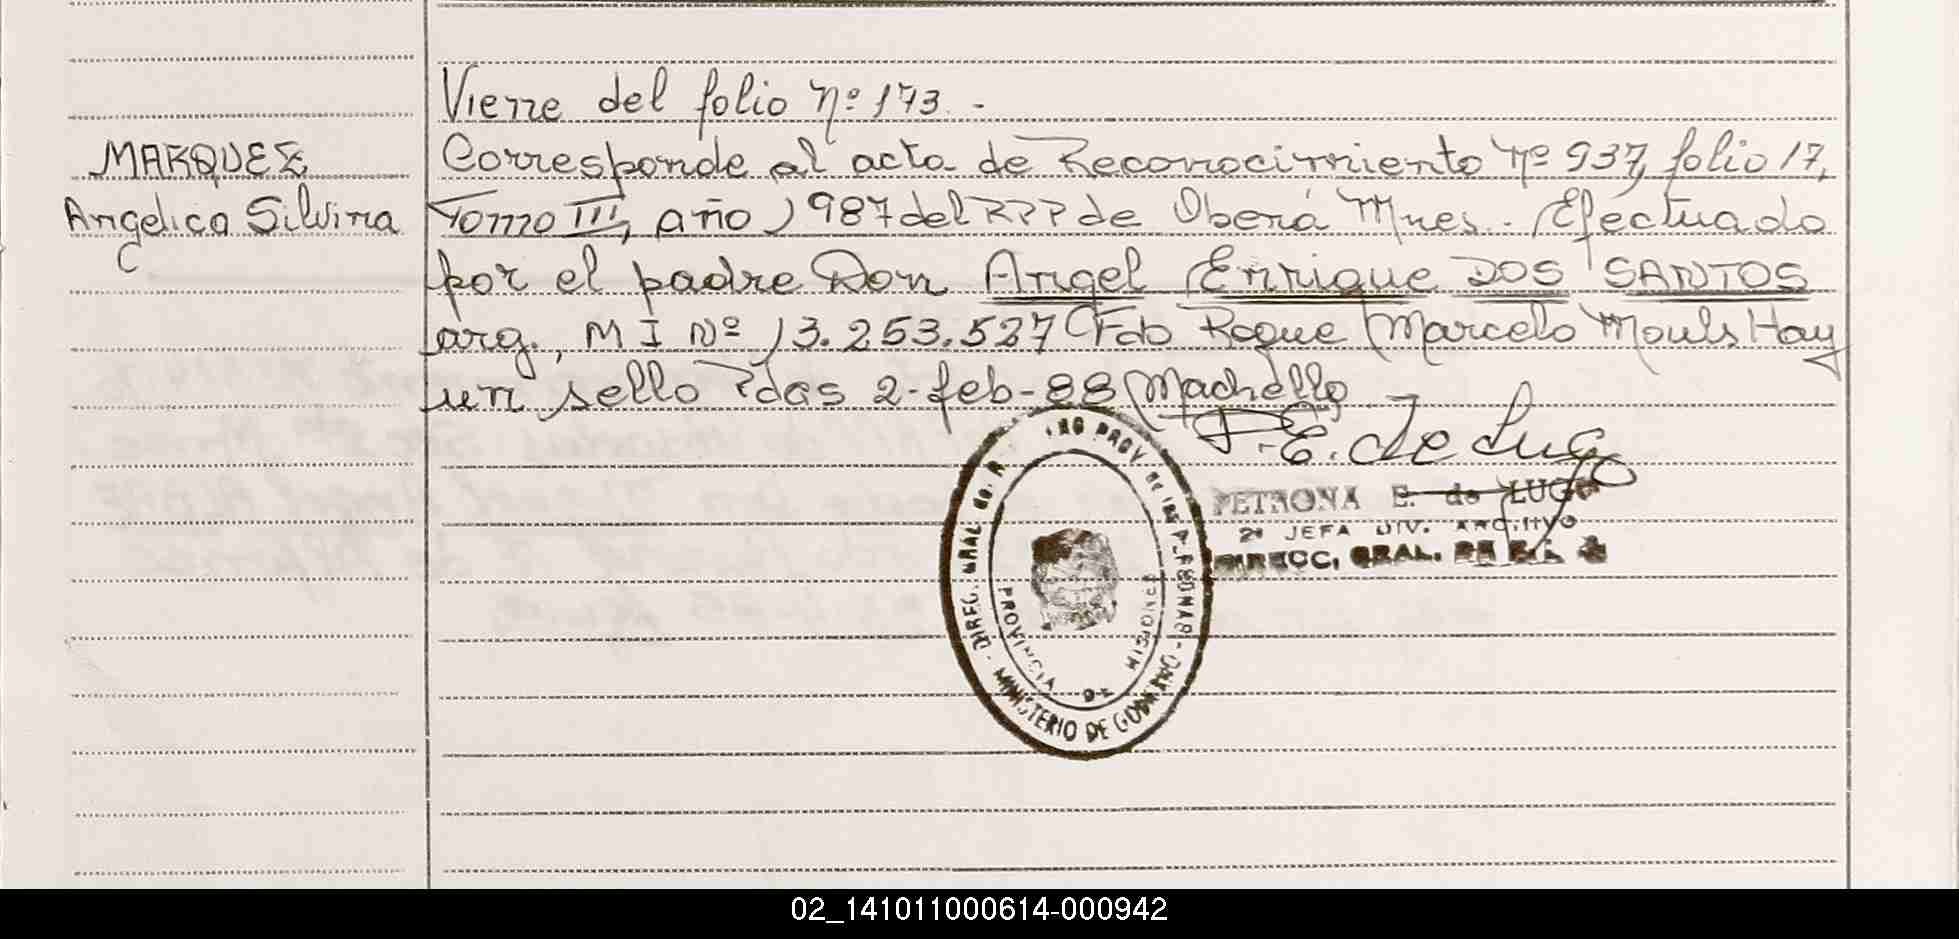 Viene del folio Nº 173.-
MARQUEZ
Angelica Silvina
Corresponde al acta de Reconocimiento Nº 937, folio 17,
Tomo III, año 1987 del RPP de Oberá Mnes. Efectuado
por el padre Don Angel Enrique DOS SANTOS
arg., M I Nº 13.253.527 Fdo Roque Marcelo Mouls Hay
un sello Pdas 2-feb-88
P.E. de Lugo
PETRONA E. de LUGO
2ª JEFA DIV. ARCHIVO
DIRECC, GRAL.
DIREC. GRAL del PROV de las PERSONAS - MINISTERIO DE GOBIERNO
PROVINCIA DE MISIONES
02_141011000614-000942